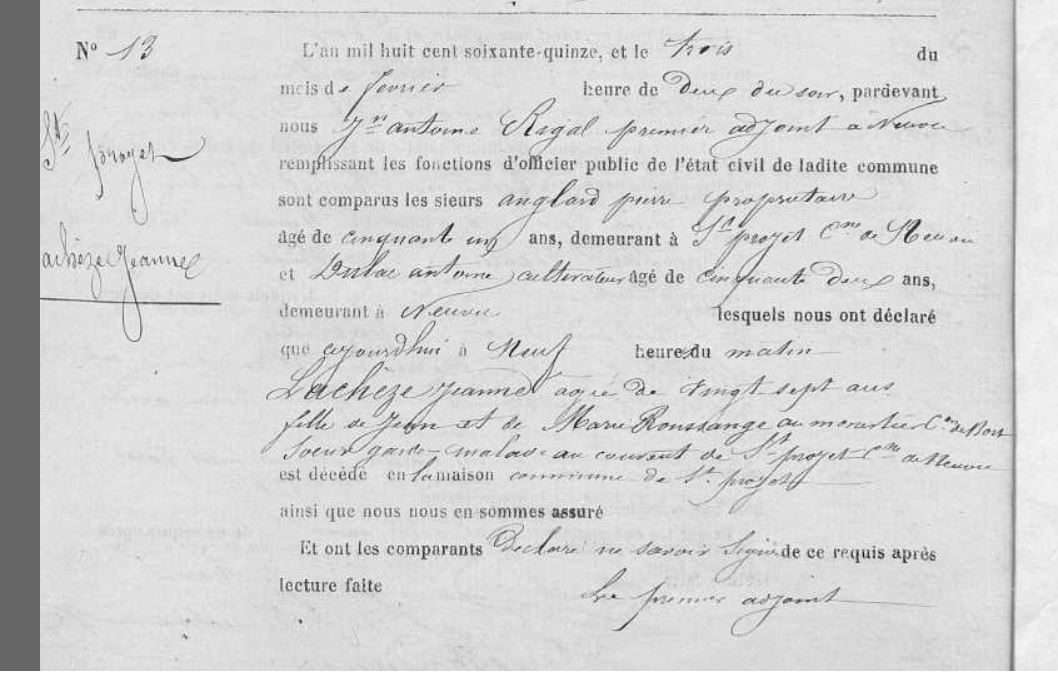 N° 13
L'an mil huit cent soixante-quinze, et le trois du
mois de fevrier heure de Deux du soir, pardevant
nous Jn antoine Rigal premier adjoint a Neuvic
remplissant les fonctions d'officier public de l'état civil de ladite commune
sont comparus les sieurs anglard pierre proprietaire
âgé de cinquante un ans, demeurant à St projet Cne de Neuvic
et Dulac antoine cultivateur âgé de cinquante Deux ans,
demeurant à Neuvic lesquels nous ont déclaré
que ajourdhui à Neuf heure du matin
Lachèze Jeanne agée de vingt sept ans
fille de Jean et de Marie Roussange au monestier Cne de Bort
Soeur garde-malade au couvent de St projet Cne de Neuvic
est décédé en la maison commune de St projet
ainsi que nous nous en sommes assuré
Et ont les comparants Declaré ne savoir Signé de ce requis après
lecture faite Le premier adjoint
St
projet
achèze Jeanne